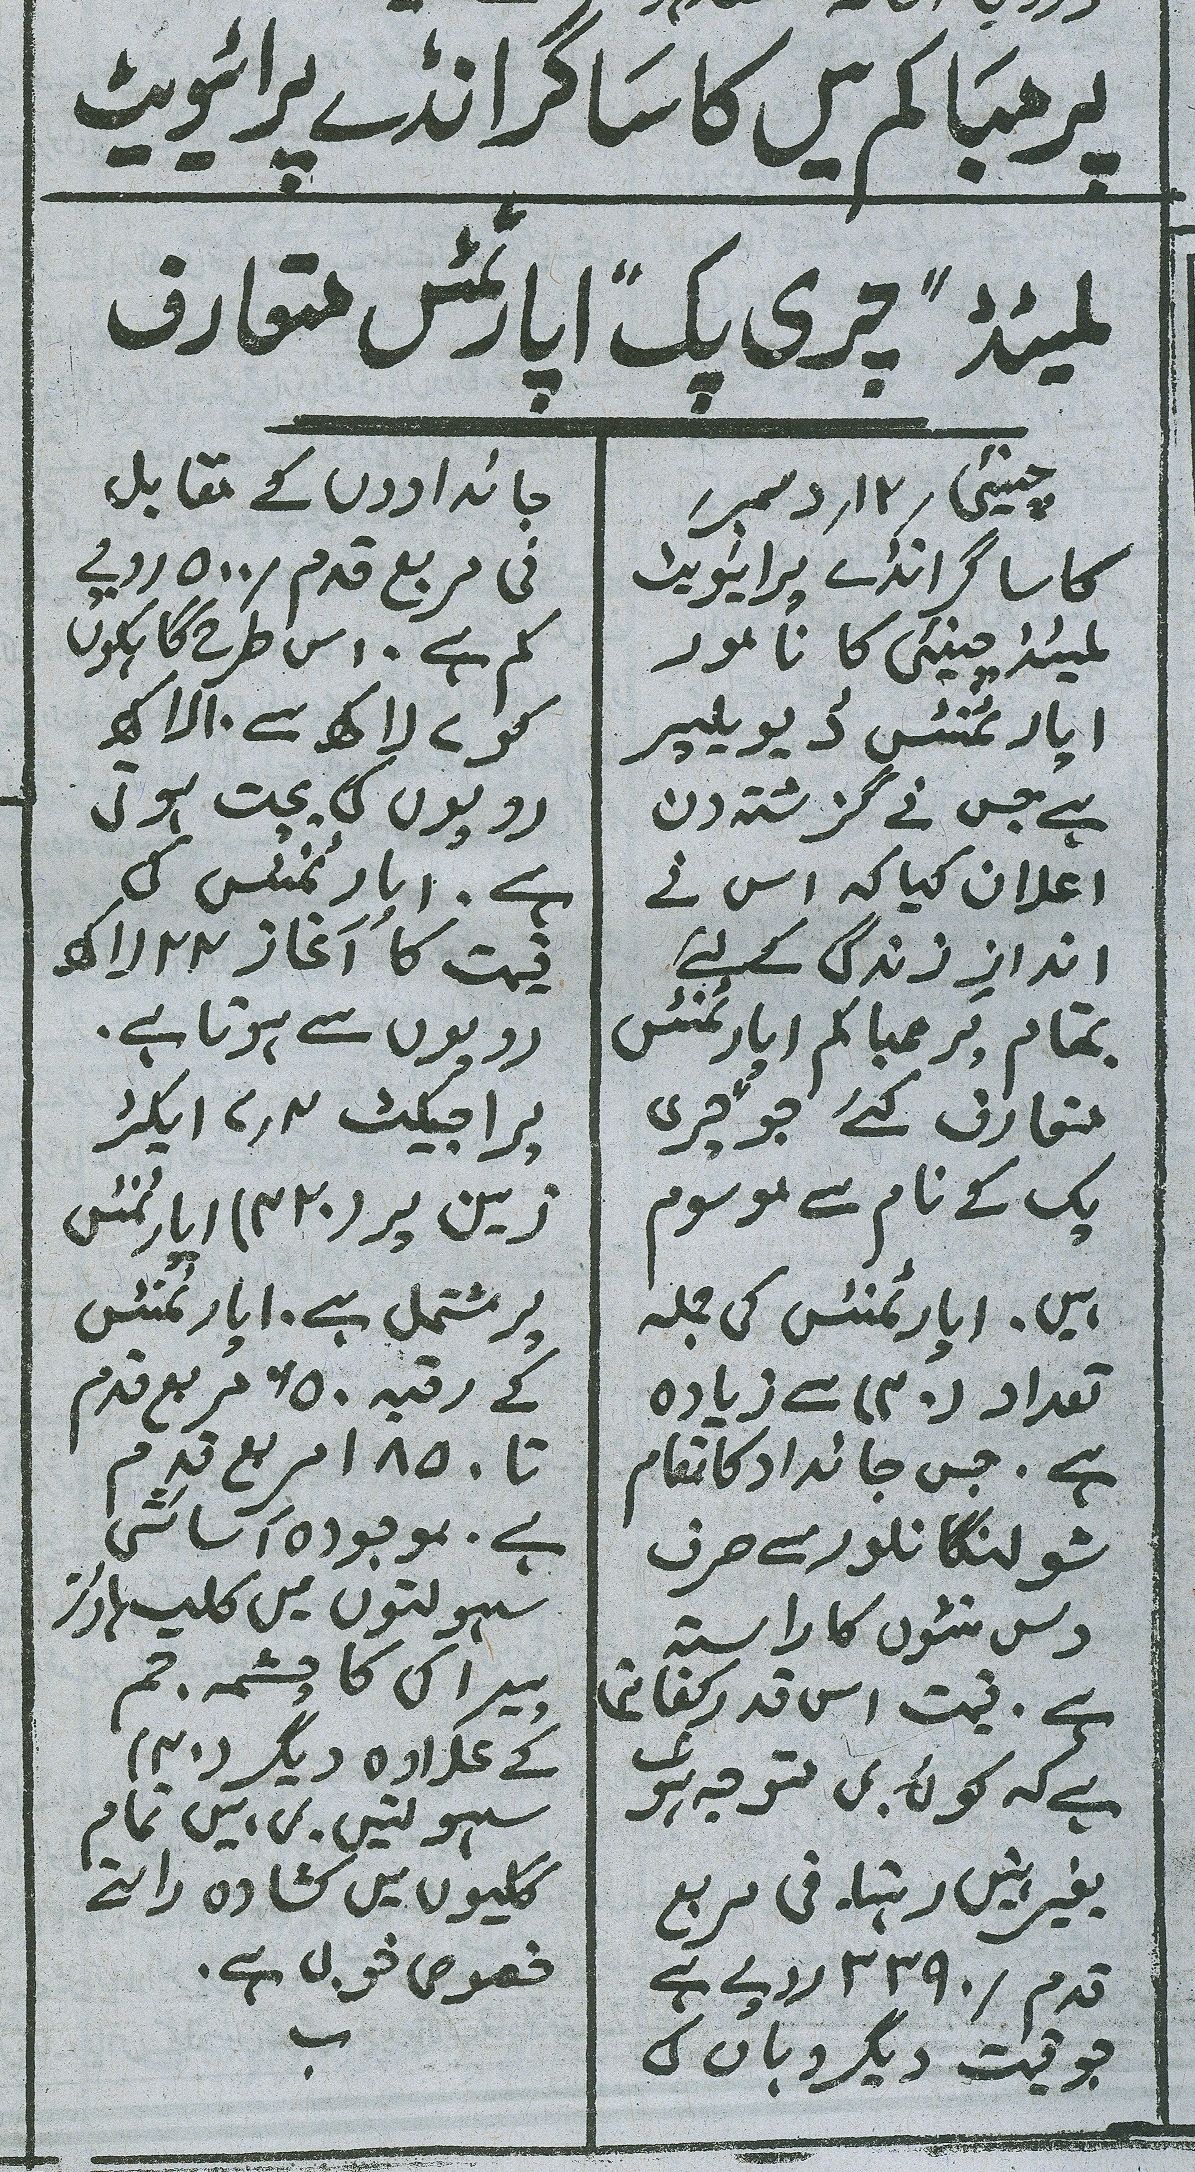 پرمباکم میں کاساگرانڈے پرائیویٹ
لمیٹڈ "چری پک" اپارٹمنٹس متعارف
چینئی ۱۲؍ دسمبر؍
کاساگرانڈے پرائیویٹ
لمیٹڈ چینئی کا نامور
اپارٹمنٹس ڈیولپر
ہے جس نے گزشتہ دن
اعلان کیا کہ اس نے
اندازِ زندگی کے لئے
بمقام پرمباکم اپارٹمنٹس
متعارف کئے جو "چری
پک کے نام سے موسوم
ہیں۔ اپارٹمنٹس کی جملہ
تعداد (۳۰) سے زیادہ
ہے۔ جس جائداد کا مقام
شولنگانلور سے صرف
دس منٹوں کا راستہ
ہے۔ قیمت اس قدر کفائتی
ہے کہ کوئی بھی متوجہ ہوئے
بغیر نہیں رہتا۔ فی مربع
قدم ؍۳۳۹۰ روپے ہے
جو قیمت دیگر وہاں کی
جائدادوں کے مقابل
فی مربع قدم ؍۵۰۰ روپے
کم ہے۔ اس طرح گاہکوں
کو ۷ لاکھ سے ۱۰ لاکھ
روپوں کی بچت ہوتی
ہے۔ اپارٹمنٹس کی
قیمت کا آغاز ۲۲ لاکھ
روپوں سے ہوتا ہے۔
پراجیکٹ ۷٫۲ ایکڑ
زمین پر (۴۲۰) اپارٹمنٹس
پر مشتمل ہے۔ اپارٹمنٹس
کے رقبہ ۶۵۰ مربع قدم
تا ۱۸۵۰ مربع قدم
ہے۔ موجودہ آسائشی
سہولتوں میں کلب ہاؤز
پیراکی کا چشمہ۔ جم
کے علاوہ دیگر (۳۰)
سہولتیں بھی ہیں تمام
گلیوں میں کشادہ راستے
خصوصی خوبی ہے۔
ب